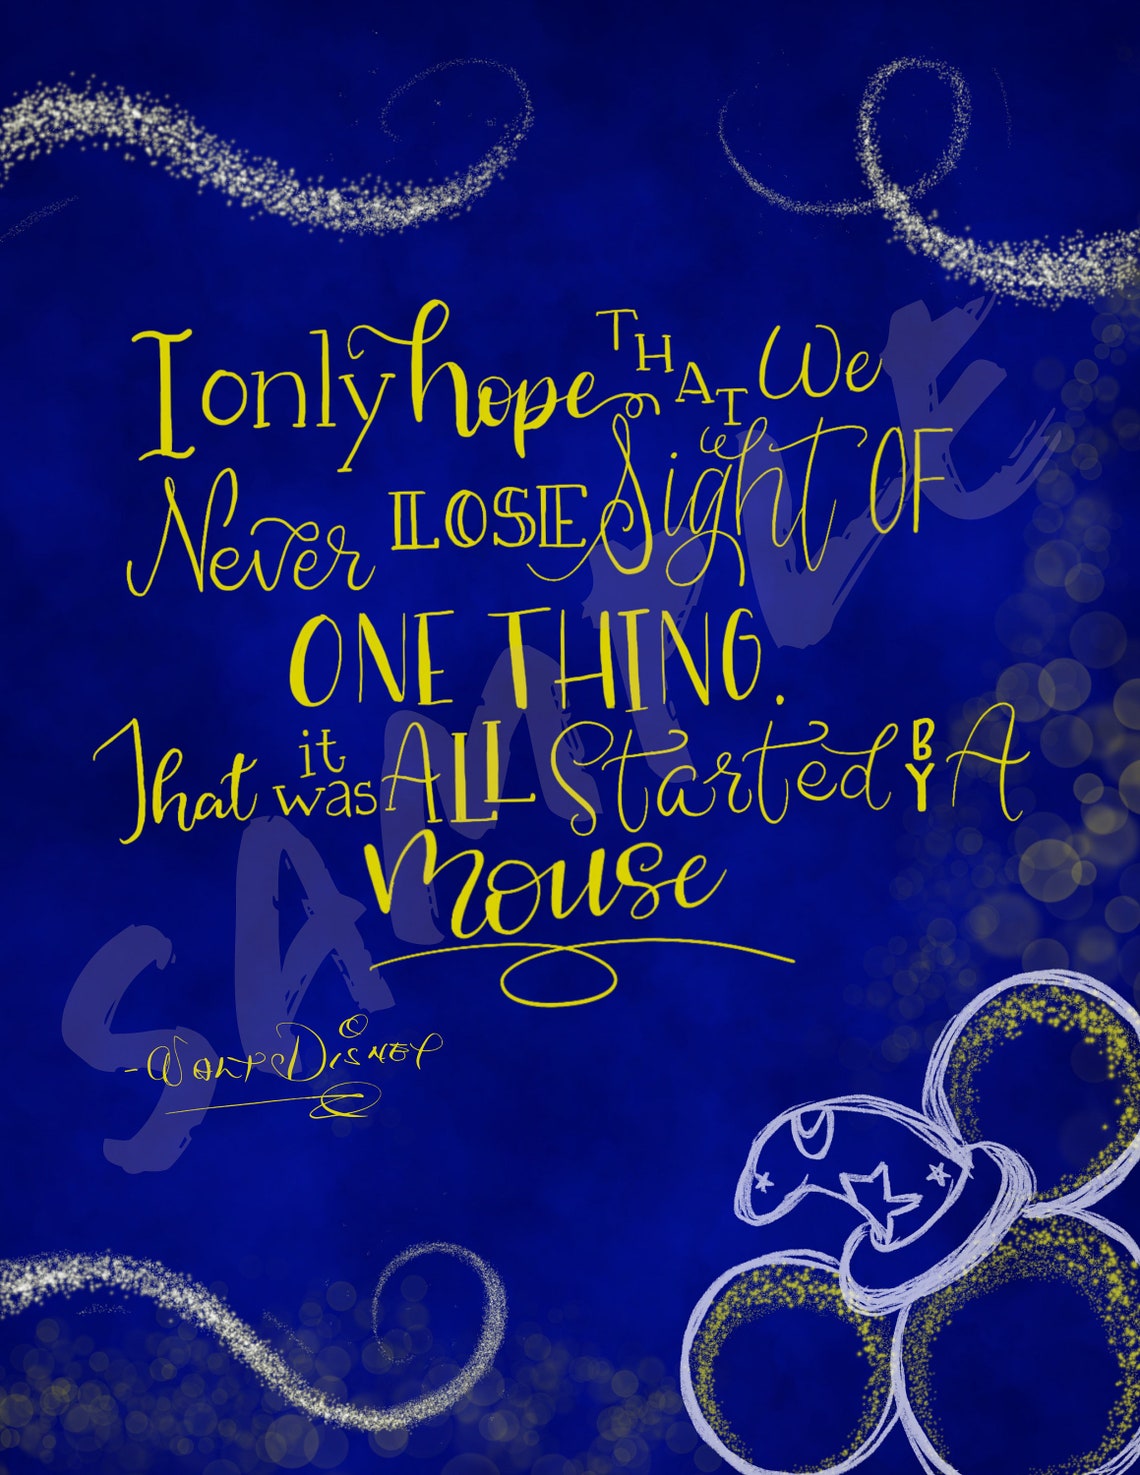 I only hope THAT We
Never LOSE Sight OF
ONE THING.
That it was ALL Started BY A
Mouse
-WALT DISNEY
SAMPLE